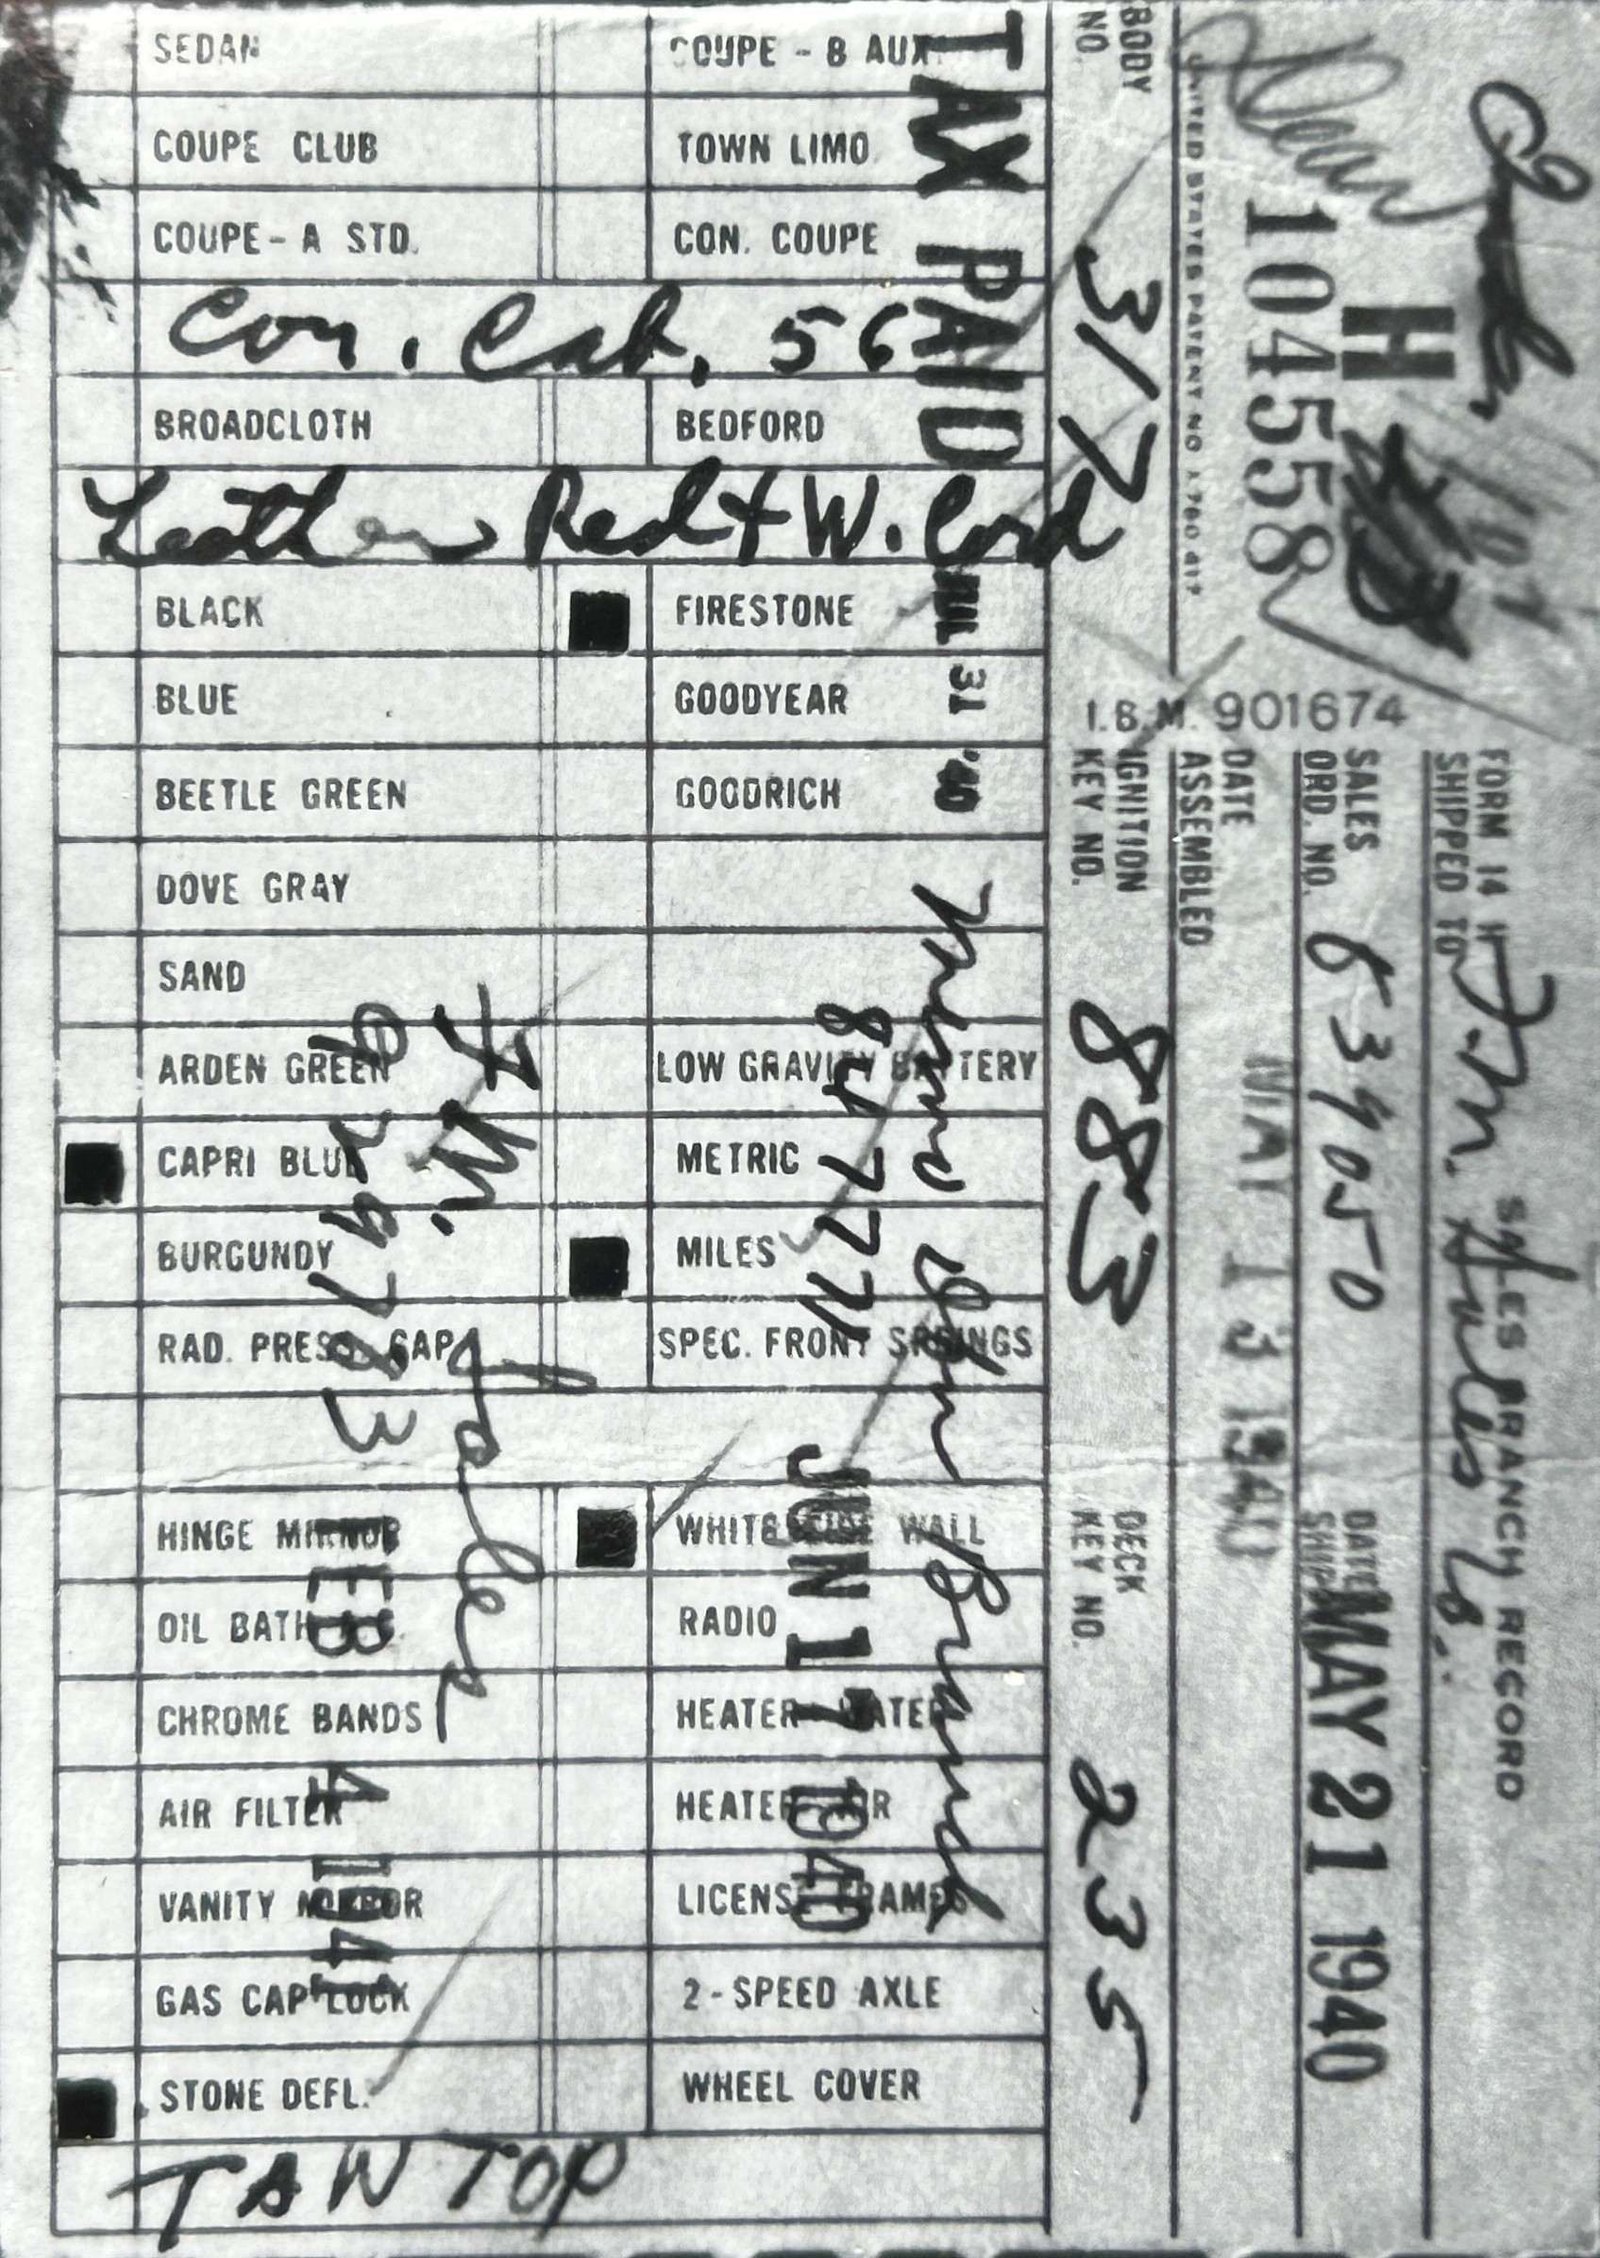 SALES BRANCH RECORD
FORM 14 H
SHIPPED TO
F. M. Sales Co.
H
104558
SALES ORD. NO. 639050
DATE SHIP. MAY 21 1940
DATE ASSEMBLED MAY 13 1940
UNITED STATES PATENT NO 1,780,417
I.B.M. 901674
BODY NO. 317
IGNITION KEY NO. 883
DECK KEY NO. 2335
TAX PAID JUL 31 '40
SEDAN
COUPE - B AUX
COUPE CLUB
TOWN LIMO
COUPE - A STD.
CON. COUPE
Con. Cab. 56
BROADCLOTH
BEDFORD
Leather Red + W. Cord
BLACK
FIRESTONE
BLUE
GOODYEAR
BEETLE GREEN
GOODRICH
DOVE GRAY
SAND
ARDEN GREEN
LOW GRAVITY BATTERY
CAPRI BLUE
METRIC
BURGUNDY
MILES
RAD. PRESS. CAP
SPEC. FRONT SPRINGS
HINGE MIRROR
WHITE SIDE WALL
OIL BATH A.C.
RADIO
CHROME BANDS
HEATER WATER
AIR FILTER
HEATER AIR
VANITY MIRROR
LICENSE FRAMES
GAS CAP LOCK
2 - SPEED AXLE
STONE DEFL.
WHEEL COVER
TAN TOP
Branch
JUN 17 1940
F. M. Sales
FEB 4 1941